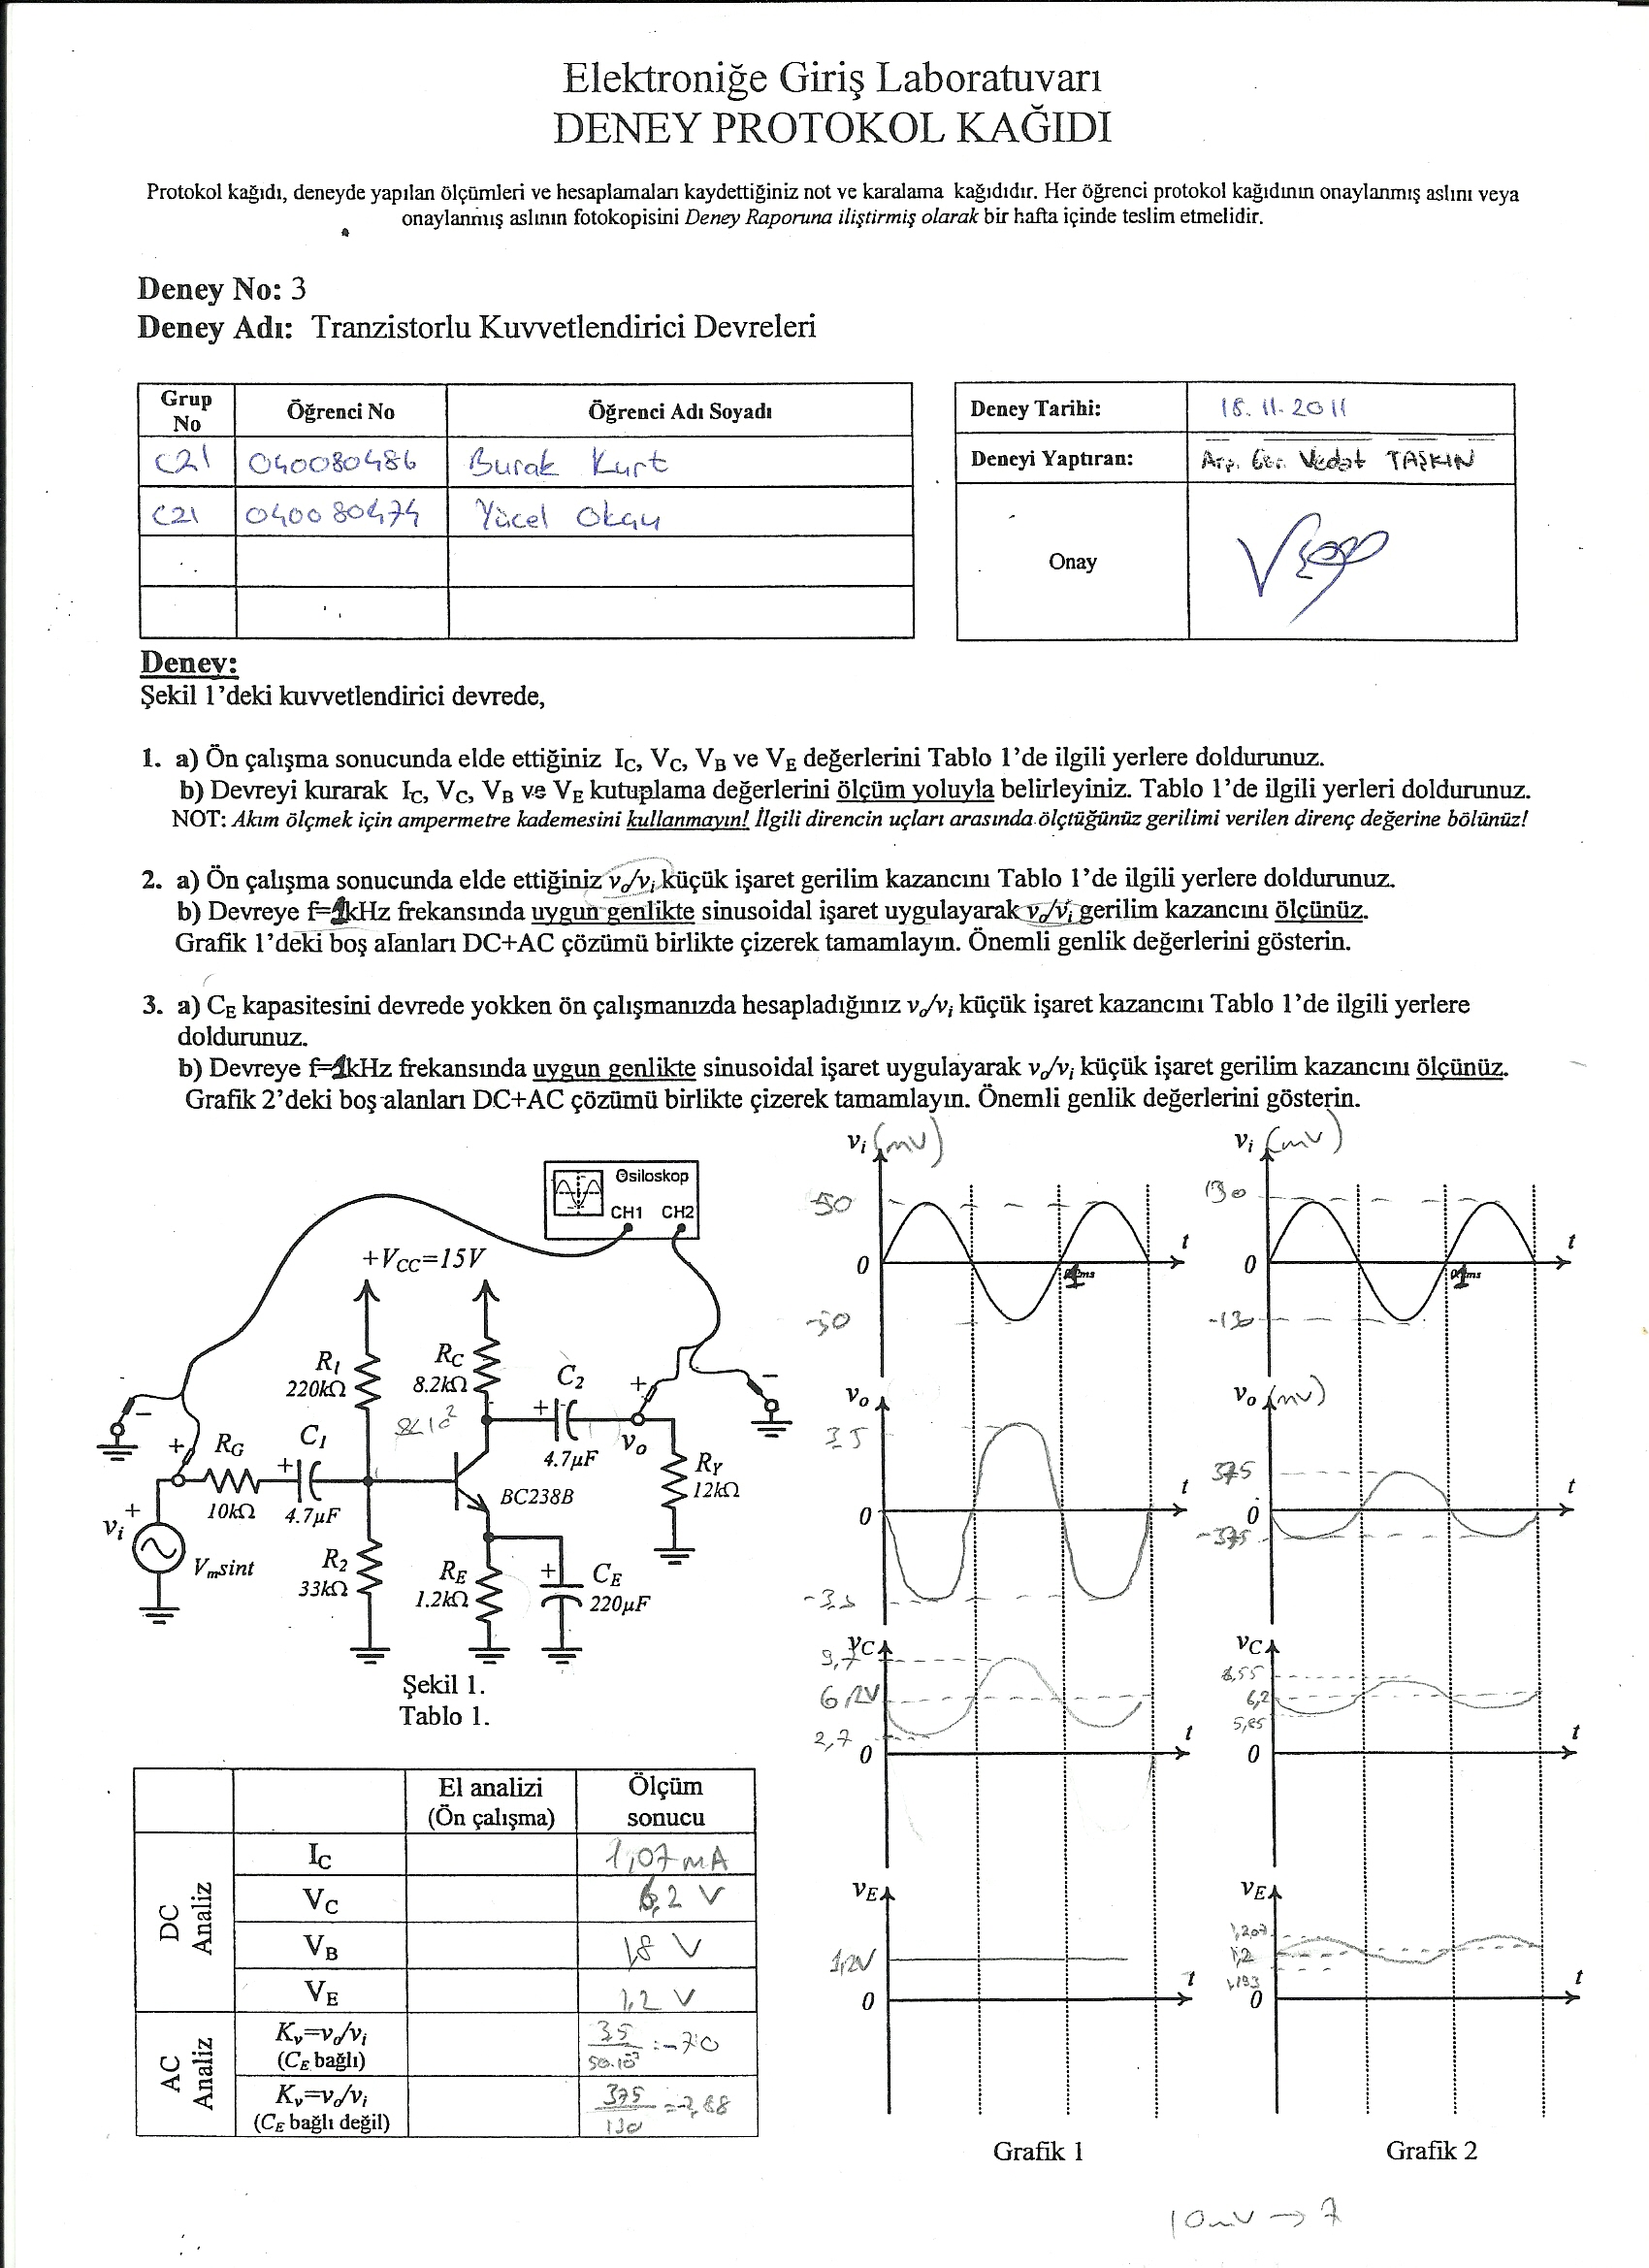 Elektroniğe Giriş Laboratuvarı
DENEY PROTOKOL KAĞIDI
Protokol kağıdı, deneyde yapılan ölçümleri ve hesaplamaları kaydettiğiniz not ve karalama kağıdıdır. Her öğrenci protokol kağıdının onaylanmış aslını veya
onaylanmış aslının fotokopisini Deney Raporuna iliştirmiş olarak bir hafta içinde teslim etmelidir.
Deney No: 3
Deney Adı: Tranzistorlu Kuvvetlendirici Devreleri
Grup No Öğrenci No Öğrenci Adı Soyadı
C21 040080486 Burak Kurt
C21 040080474 Yücel Okay
Deney Tarihi: 18.11.2011
Deneyi Yaptıran: Vedat TAŞKIN
Onay
Deney:
Şekil 1'deki kuvvetlendirici devrede,
1. a) Ön çalışma sonucunda elde ettiğiniz IC, VC, VB ve VE değerlerini Tablo 1'de ilgili yerlere doldurunuz.
b) Devreyi kurarak IC, VC, VB ve VE kutuplama değerlerini ölçüm yoluyla belirleyiniz. Tablo 1'de ilgili yerleri doldurunuz.
NOT: Akım ölçmek için ampermetre kademesini kullanmayın! İlgili direncin uçları arasında ölçtüğünüz gerilimi verilen direnç değerine bölünüz!
2. a) Ön çalışma sonucunda elde ettiğiniz vo/vi küçük işaret gerilim kazancını Tablo 1'de ilgili yerlere doldurunuz.
b) Devreye f=1kHz frekansında uygun genlikte sinusoidal işaret uygulayarak vo/vi gerilim kazancını ölçünüz.
Grafik 1'deki boş alanları DC+AC çözümü birlikte çizerek tamamlayın. Önemli genlik değerlerini gösterin.
3. a) CE kapasitesini devrede yokken ön çalışmanızda hesapladığınız vo/vi küçük işaret kazancını Tablo 1'de ilgili yerlere
doldurunuz.
b) Devreye f=1kHz frekansında uygun genlikte sinusoidal işaret uygulayarak vo/vi küçük işaret gerilim kazancını ölçünüz.
Grafik 2'deki boş alanları DC+AC çözümü birlikte çizerek tamamlayın. Önemli genlik değerlerini gösterin.
Osiloskop
CH1 CH2
+VCC=15V
R1
220kΩ
RC
8.2kΩ
C2
4.7µF
+
−
RG
10kΩ
C1
4.7µF
vo
RY
12kΩ
BC238B
vi
Vmsint
R2
33kΩ
RE
1.2kΩ
CE
220µF
Şekil 1.
Tablo 1.
El analizi (Ön çalışma)
Ölçüm sonucu
DC Analiz
IC 1,07 mA
VC 6,2 V
VB 1,8 V
VE 1,2 V
AC Analiz
Kv=vo/vi (CE bağlı) 3,5 / 50.10⁻³ = -70
Kv=vo/vi (CE bağlı değil) 375 / 130 = -2,88
vi (mV)
50
0
-50
1ms
t
vo
3,5
0
-3,5
t
vC
9,7
6,2V
2,7
0
t
vE
1,2V
0
t
Grafik 1
vi (mV)
130
0
-130
1ms
t
vo (mV)
375
0
-375
t
vC
6,55
6,2
5,85
0
t
vE
1,207
1,2
1,193
0
t
Grafik 2
10mV → 7